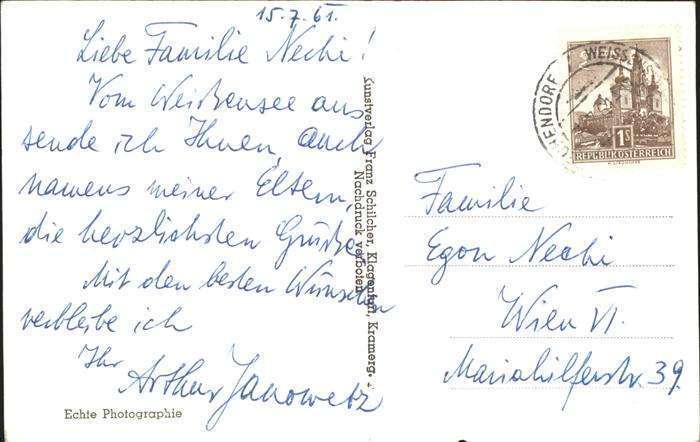 15.7.61.
Liebe Familie Nechi!
Vom Weißensee aus
sende ich Ihnen, auch
namens meiner Eltern,
die herzlichsten Grüße.
Mit den besten Wünschen
verbleibe ich
Ihr
Arthur Janowetz
Echte Photographie
Kunstverlag Franz Schilcher, Klagenfurt, Kramerg.
Nachdruck verboten
WEISS
1S
REPUBLIK ÖSTERREICH
Familie
Egon Nechi
Wien VI.
Mariahilferstr. 39.